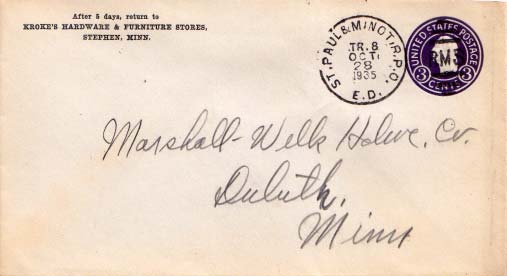 After 5 days, return to
KROKE'S HARDWARE & FURNITURE STORES,
STEPHEN, MINN.
ST. PAUL & MINOT R.P.O.
TR. 8
OCT
28
1935
E.D.
UNITED STATES POSTAGE
RMS
3 CENTS 3
Marshall-Wells Hdwe. Co.
Duluth,
Minn